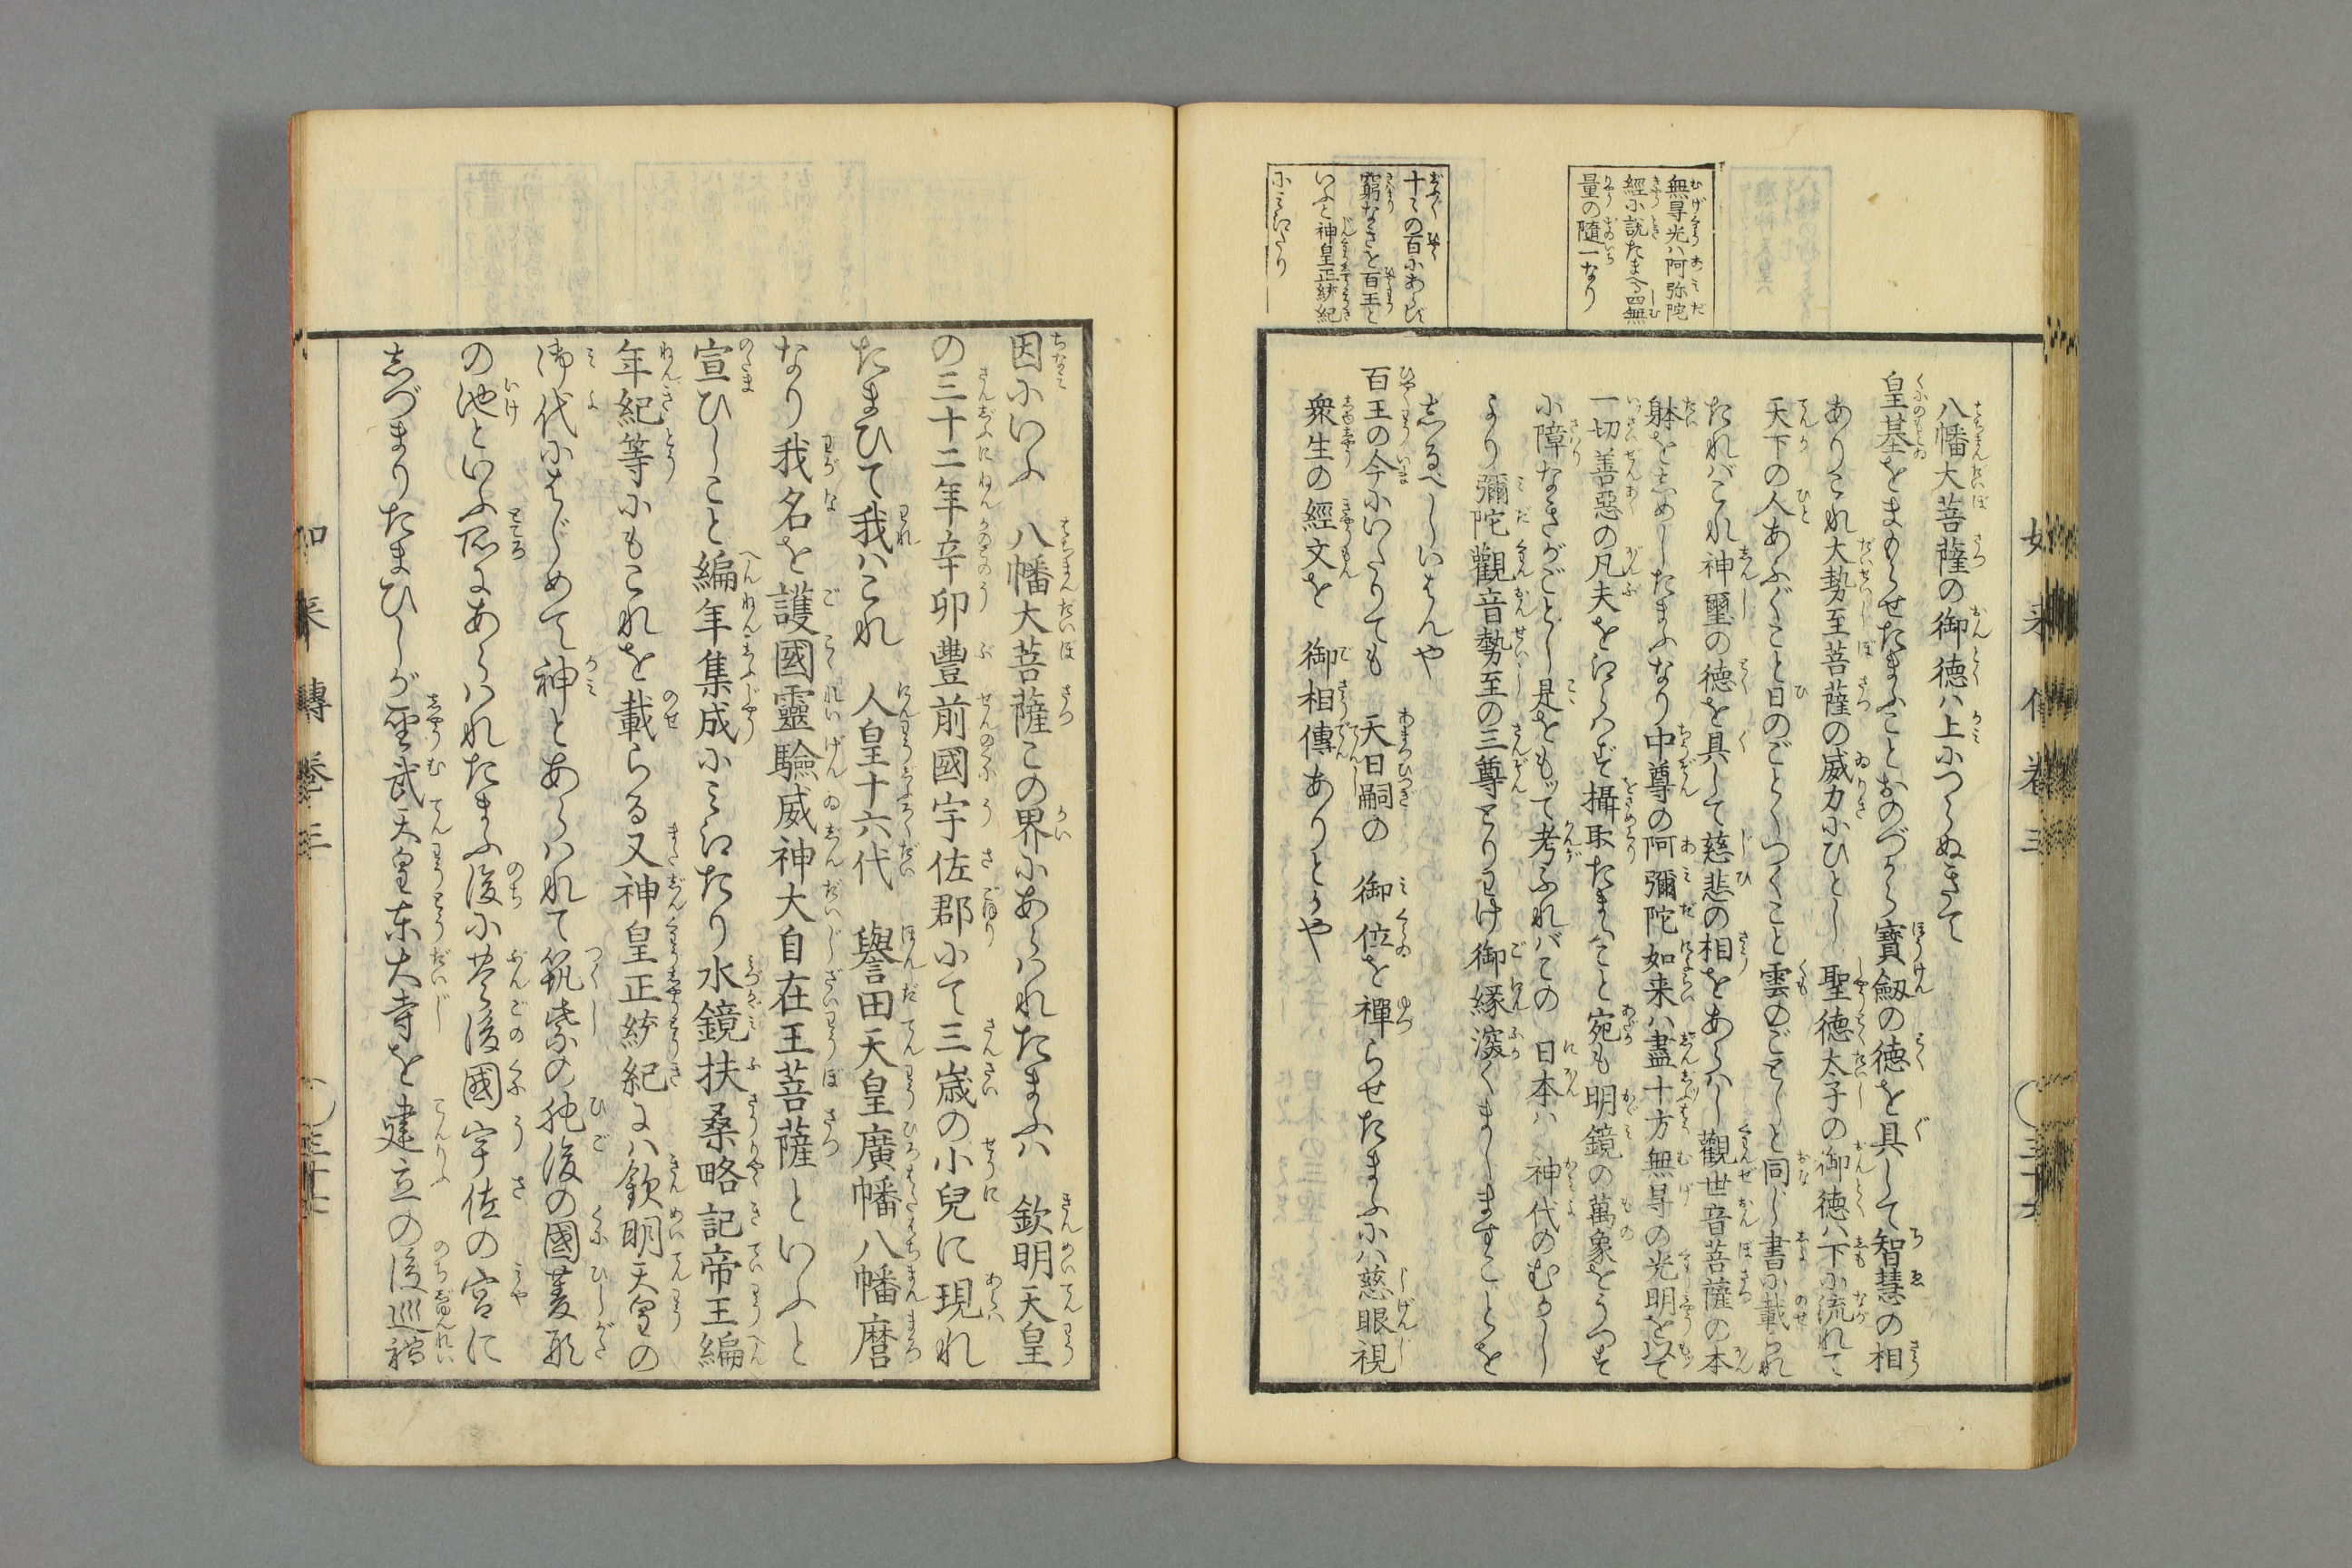 無㝵光ハ阿弥陀
經小説たまへる四無
量の隨一なり
十々の百にあらず
窮なきを百王と
いふと神皇正統紀
にみえたり
八幡大菩薩の御徳ハ上につらぬきて
皇基をまもらせたまふことおのづから寶劔の徳を具して智慧の相
ありこれ大勢至菩薩の威力にひとし 聖徳太子の御徳ハ下に流れて
天下の人あふぐこと日のごとくつくこと雲のごとしと同じ書に載られ
たれバこれ神璽の徳を具して慈悲の相をあらハし觀世音菩薩の本
躰をしめしたまふなり中尊の阿彌陀如来ハ盡十方無㝵の光明を以て
一切善惡の凡夫をえらハず攝取たまふこと宛も明鏡の萬象をうつす
に障なきがごとし是をもッて考ふれバこの 日本ハ 神代のむかし
より彌陀觀音勢至の三尊とりわけ御縁深くましますことを
しるべしいはんや
百王の今にいたりても 天日嗣の 御位を禪らせたまふにハ慈眼視
衆生の經文を 御相傳ありとかや
如来傳巻三 三十六
因にいふ 八幡大菩薩この界にあらハれたまふハ 欽明天皇
の三十二年辛卯豐前國宇佐郡にて三歳の小兒に現れ
たまひて我ハこれ 人皇十六代 譽田天皇廣幡八幡麿
なり我名を護國靈驗威神大自在王菩薩といふと
宣ひしこと編年集成にみえたり水鏡扶桑略記帝王編
年紀等にもこれを載らる又神皇正統紀にハ欽明天皇の
御代にはじめて神とあらハれて筑紫の肥後の國菱形
の池といふ所にあらハれたまふ後に豊後國宇佐の宮に
しづまりたまひしが聖武天皇東大寺を建立の後巡禮
如来傳巻三